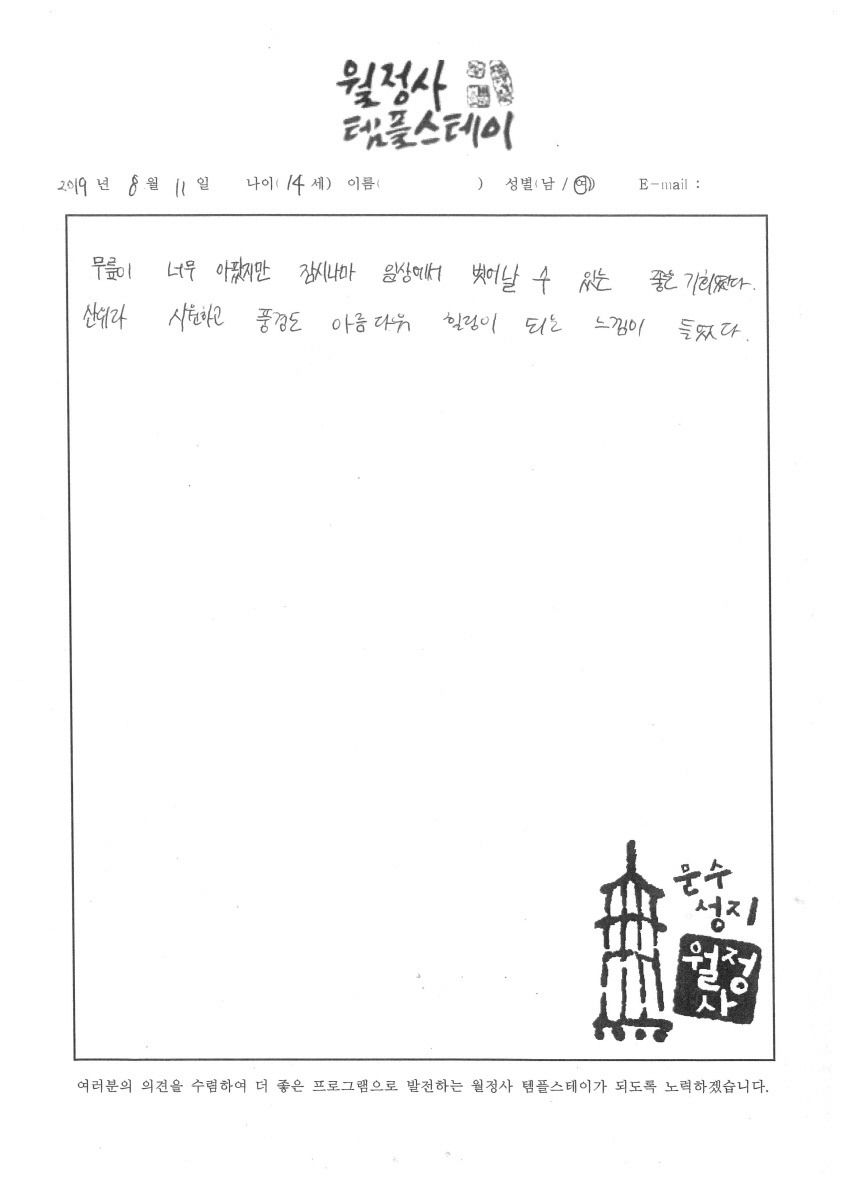 월정사
템플스테이
2019 년 8 월 11 일 나이( 14 세) 이름( ) 성별(남 / 여) E-mail :
무릎이 너무 아팠지만 잠시나마 일상에서 벗어날 수 있는 좋은 기회였다.
산위라 시원하고 풍경도 아름다워 힐링이 되는 느낌이 들었다.
문수
성지
월정
사
여러분의 의견을 수렴하여 더 좋은 프로그램으로 발전하는 월정사 템플스테이가 되도록 노력하겠습니다.